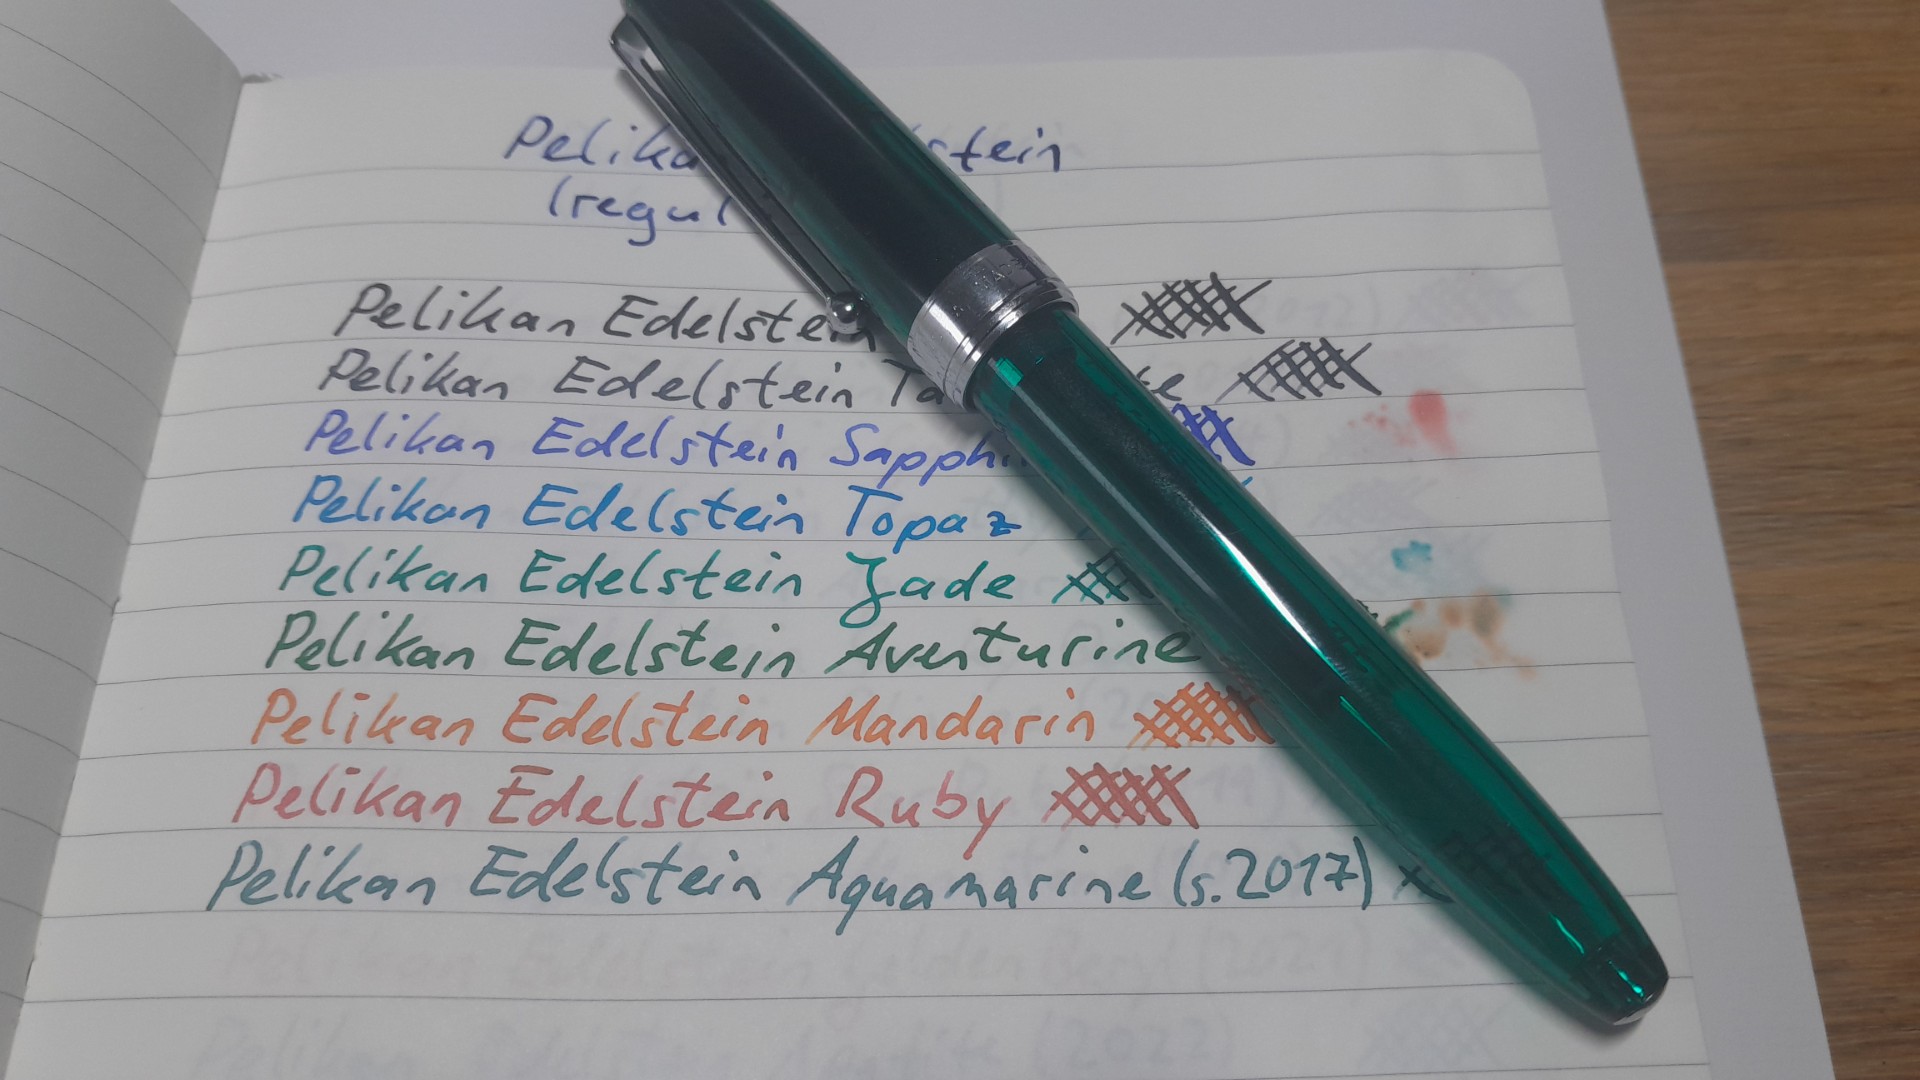 Pelikan
(regul
Pelikan Edelstein
Pelikan Edelstein
Pelikan Edelstein
Pelikan Edelstein Topaz
Pelikan Edelstein Jade
Pelikan Edelstein Aventurine
Pelikan Edelstein Mandarin
Pelikan Edelstein Ruby
Pelikan Edelstein Aquamarine (s. 2017)